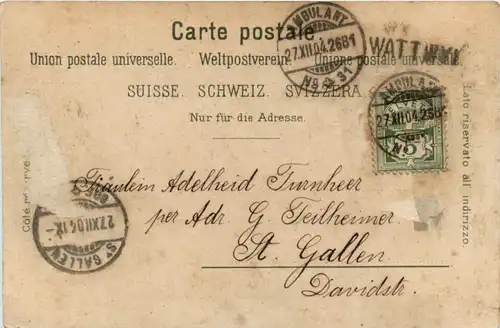 Carte postale.
Union postale universelle. Weltpostverein. Unione postale universale
SUISSE. SCHWEIZ. SVIZZERA.
Nur für die Adresse.
AMBULANT
27.XII.04.2681
No 31
WATTWYL
AMBULANT
27.XII.04.268
No
5
Lato riservato all' indirizzo.
Côté rve
27.XII.04.1
ST GALLEN
Fräulein Adelheid Turnheer
per Adr. G. Teilheimer
St. Gallen
Davidstr.